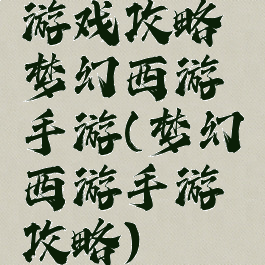 游戏攻略
梦幻西游
手游(梦幻
西游手游
攻略)